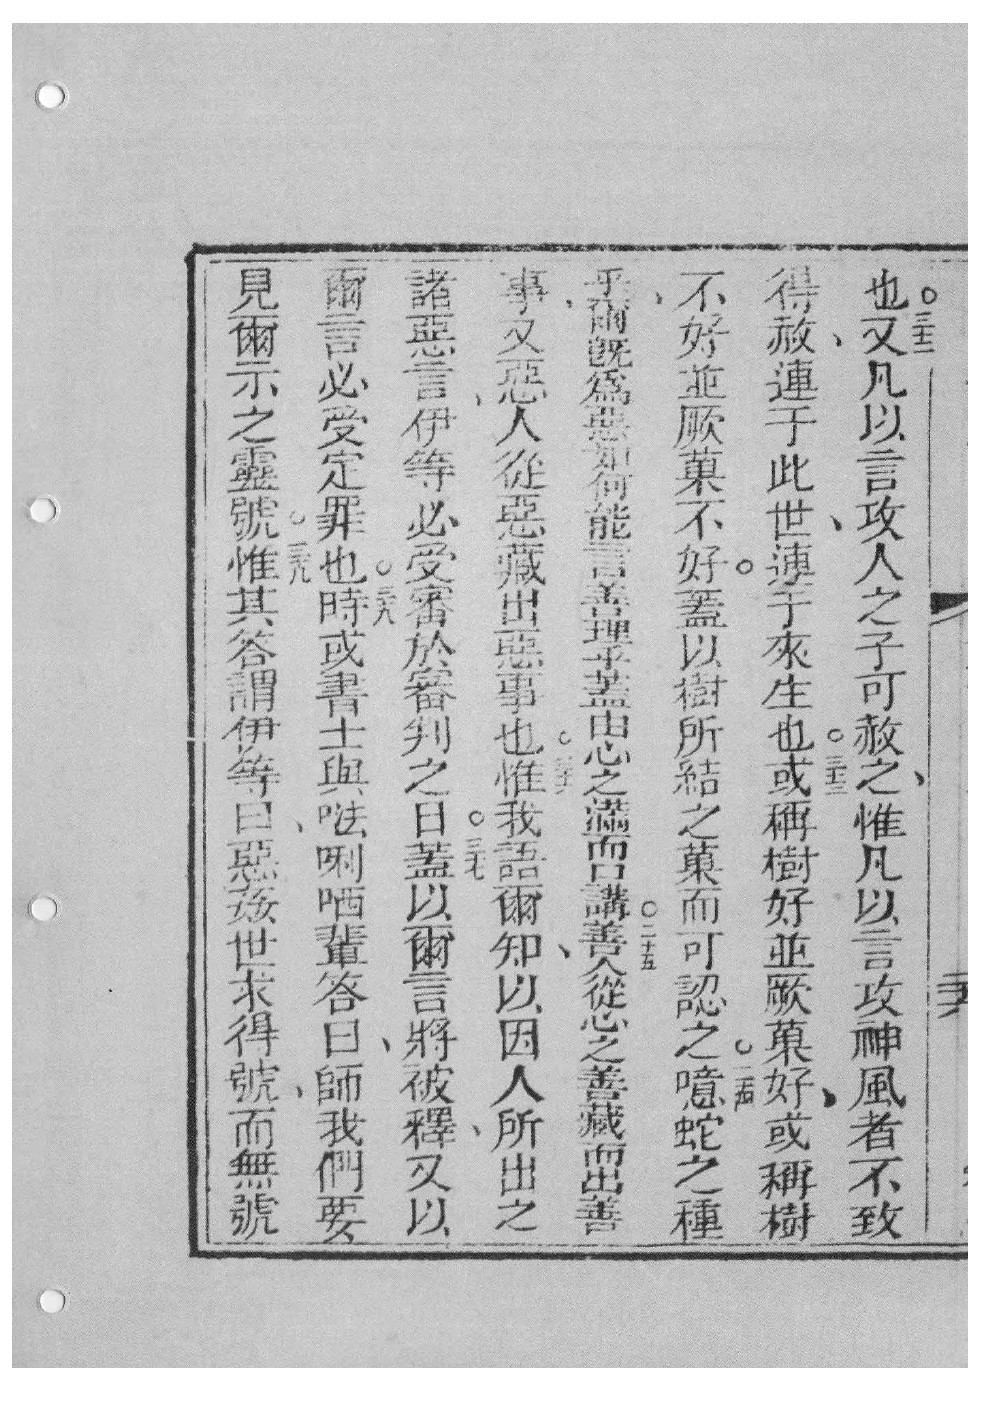 也○三十二又凡以言攻人之子可赦之、惟凡以言攻神風者不致
得赦、連于此世、連于來生也○三十三或稱樹好並厥菓好、或稱樹
不好並厥菓不好○蓋以樹所結之菓而可認之○三十四噫蛇之種
乎、爾既為惡如何能言善理乎蓋由心之滿而口講○三十五善人從心之善藏而出善
事、又惡人從惡藏出惡事也○三十六惟我語爾知、以因人所出之
諸惡言、伊等必受審於審判之日○三十七蓋以爾言將被釋、又以
爾言必受定罪也○三十八時或書士與𠵽唎哂輩答曰、師我們要
見爾示之靈號○三十九惟其答謂伊等曰、惡姦世求得號、而無號